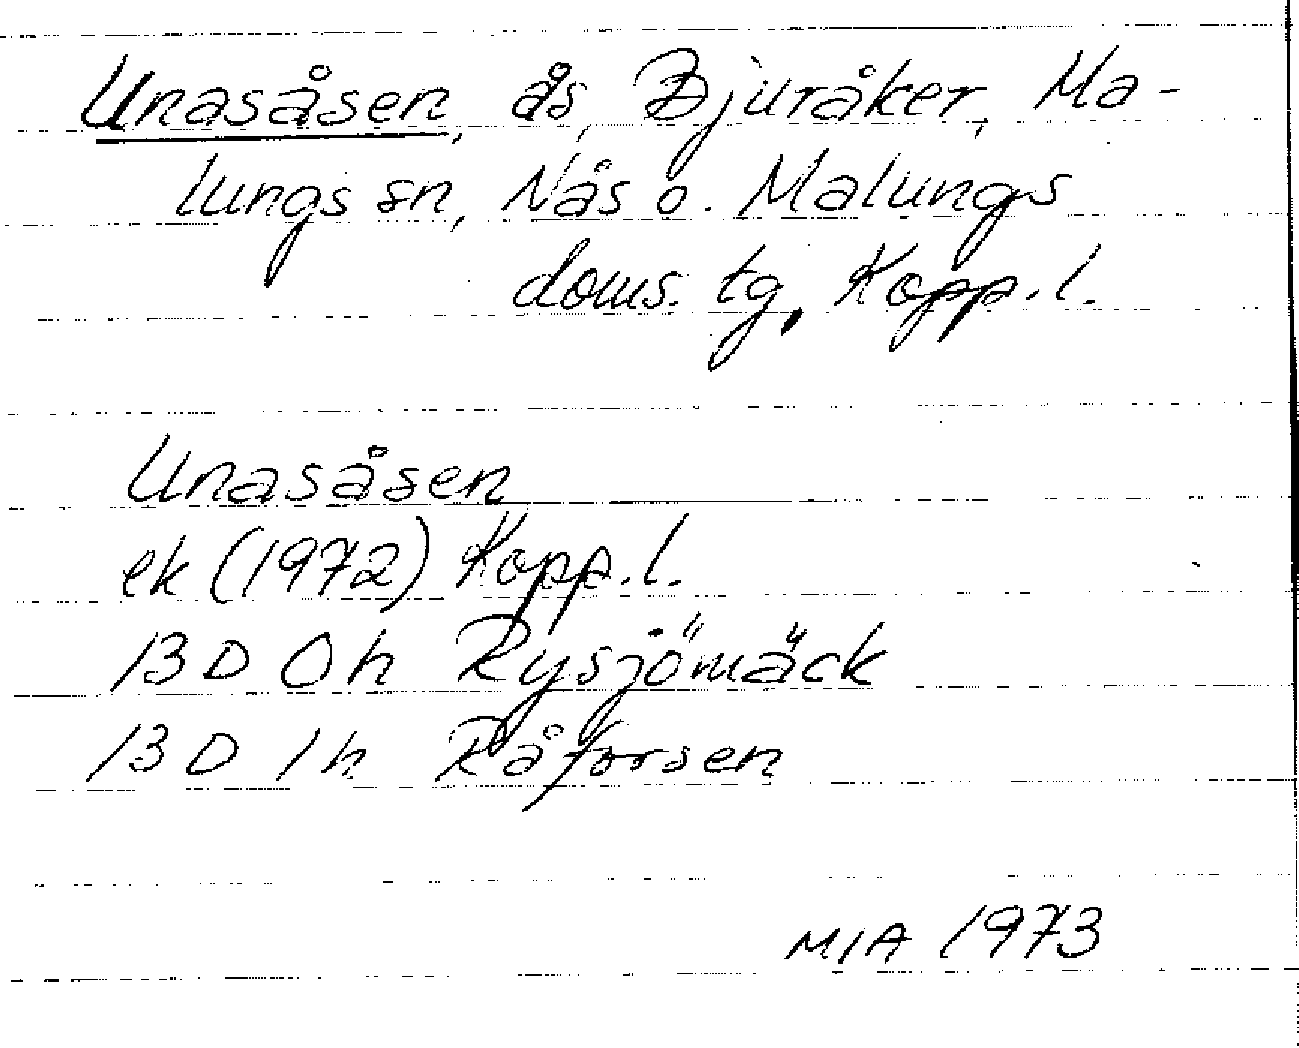 Unasåsen, ås, Bjuråker, Ma-
lungs sn, Nås o. Malungs
doms. tg, Kopp. l.
Unasåsen
ek (1972) Kopp. l.
13 D 0 h Rysjömäck
13 D 1 h Råforsen
MIA 1973